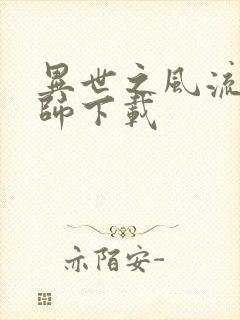 異世之風流
師下載
亦陌安-